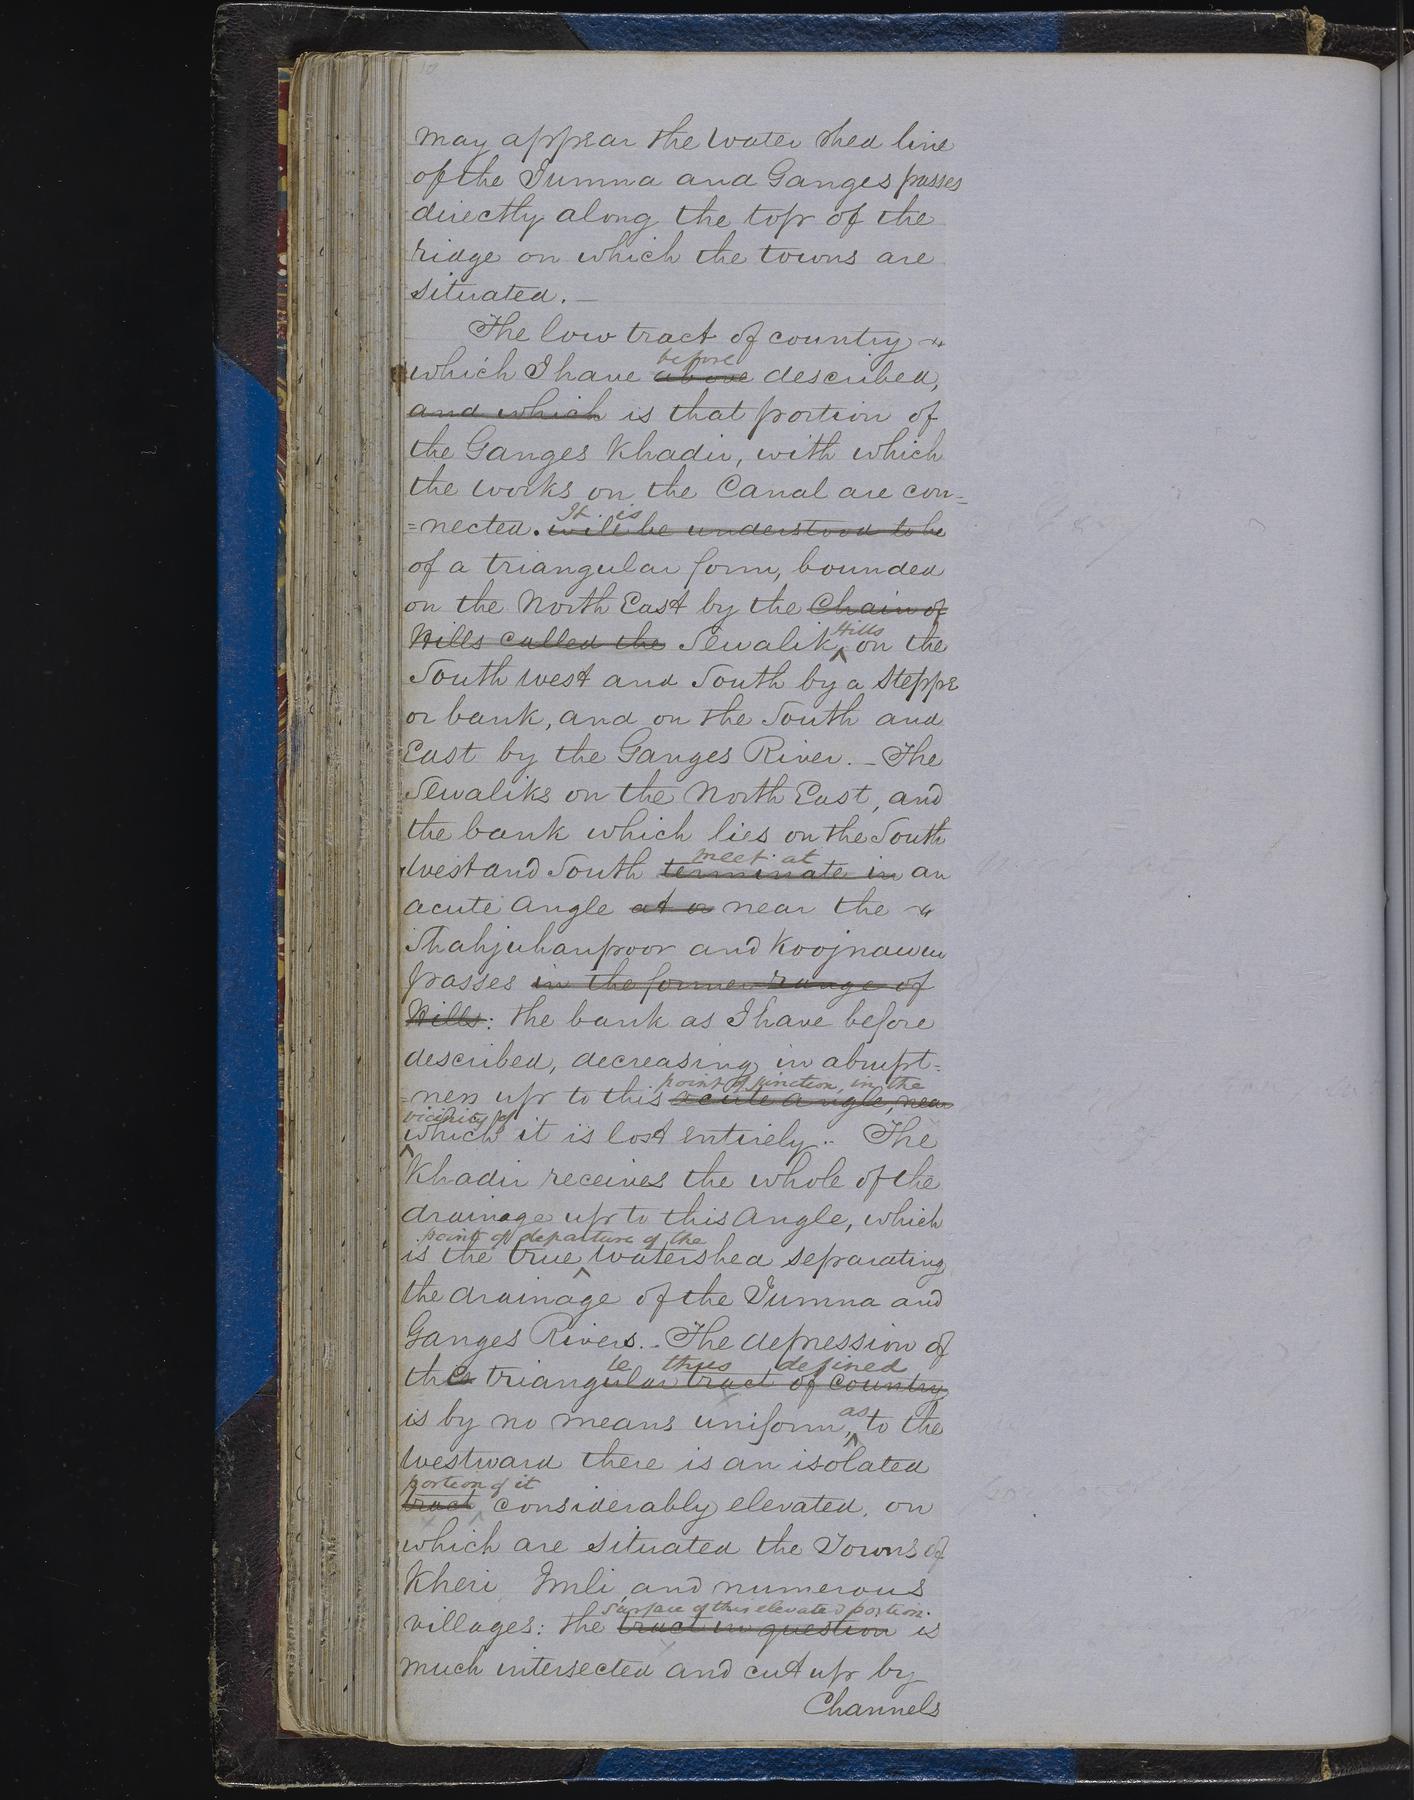 10
may appear the water shed line
of the Jumna and Ganges passes
directly along the top of the
ridge on which the towns are
situated. —
The low tract of country
before
which I have above described,
and which is that portion of
the Ganges Khadir, with which
the works on the Canal are con=
It is
=nected. will be understood to be
of a triangular form, bounded
on the North East by the Chain of
Hills
Hills called the Sewalik, on the
South west and South by a steppe
or bank, and on the South and
East by the Ganges River. – The
Sewaliks on the North East, and
the bank which lies on the South
meet at
West and South terminate in an
acute angle at or near the
Shahjuhanpoor and Koojnawur
passes in the former range of
Hills: the bank as I have before
described, decreasing in abrupt=
point of junction, in the
=ness up to this acute angle, near
vicinity of
which it is lost entirely. The
Khadir receives the whole of the
drainage up to this Angle, which
point of departure of the
is the true watershed separating
the drainage of the Jumna and
Ganges Rivers. The depression of
le thus defined
the triangular tract of country
as
is by no means uniform, to the
Westward there is an isolated
portion of it
tract considerably elevated, on
which are situated the Towns of
Kheri Imli and numerous
surface of this elevated portion
villages: the tract in question is
much intersected and cut up by
Channels